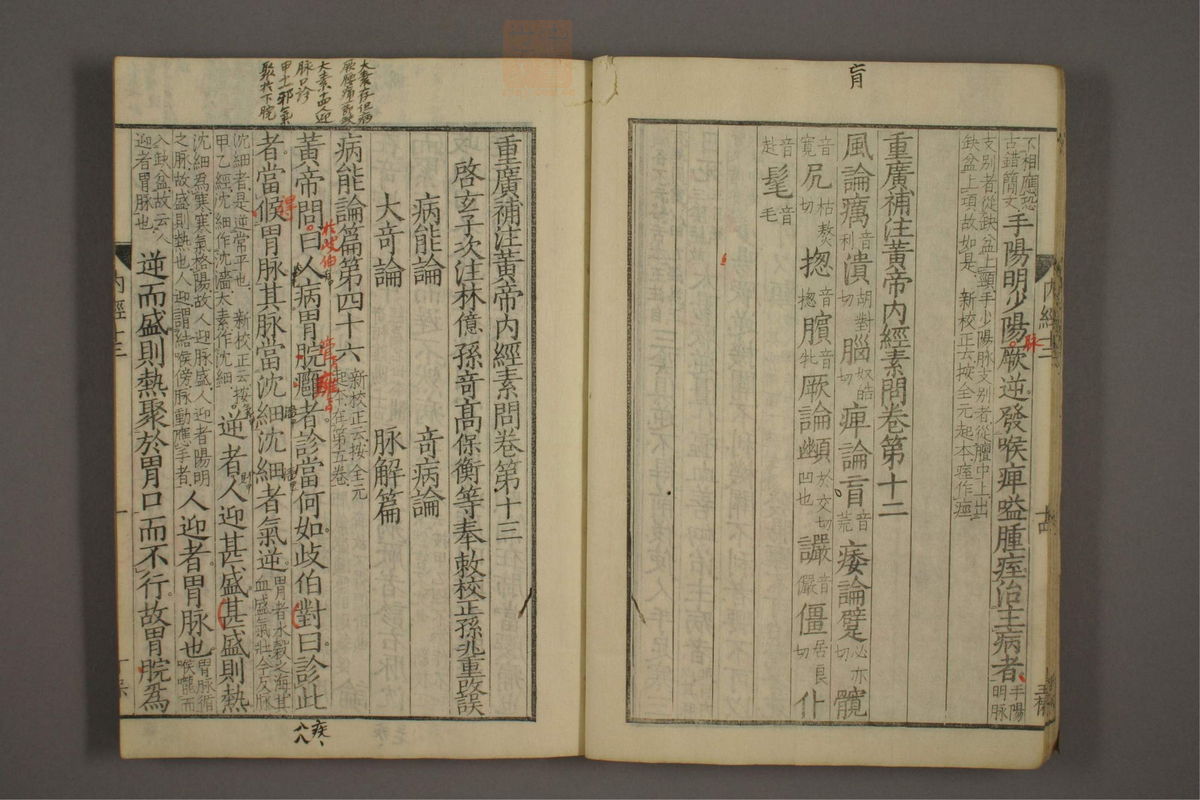 盲
下相應恐
古錯簡文
手陽明少陽厥逆發喉痺嗌腫痓治主病者
手陽
明脉
支別者從缺盆上頸手少陽脉支別者從膻中上出
缺盆上項故如是 新校正云按全元起本痓作痙
重廣補注黃帝内經素問卷第十二
風論癘音利潰胡對切腦奴皓切痺論肓音荒痿論躄必亦切髖
音寬尻音枯熬切揔音揔臏音牝厥論顤於交切幽凹也讝音儼僵居良切仆
音赴髦音毛
重廣補注黃帝内經素問卷第十三
啓玄子次注林億孫奇高保衡等奉敕校正孫兆重改誤
病能論 奇病論
大奇論 脉解篇
病能論篇第四十六
新校正云按全元
起本在第五卷
黃帝問曰人病胃脘癰者診當何如歧伯對曰診此
者當候胃脉其脉當沈細沈細者氣逆
胃者水穀之海其
血盛氣壯今反脉
沈細者是逆常平也 新校正云按
甲乙經沈細作沈濇太素作沈細
逆者人迎甚盛甚盛則熱
沈細爲寒寒氣格陽故人迎脉盛人迎者陽明
之脉故盛則熱也人迎謂結喉傍脉動應手者
人迎者胃脉也
胃脉循
喉嚨而
入缺盆故云人
迎者胃脉也
逆而盛則熱聚於胃口而不行故胃脘爲
内經十三